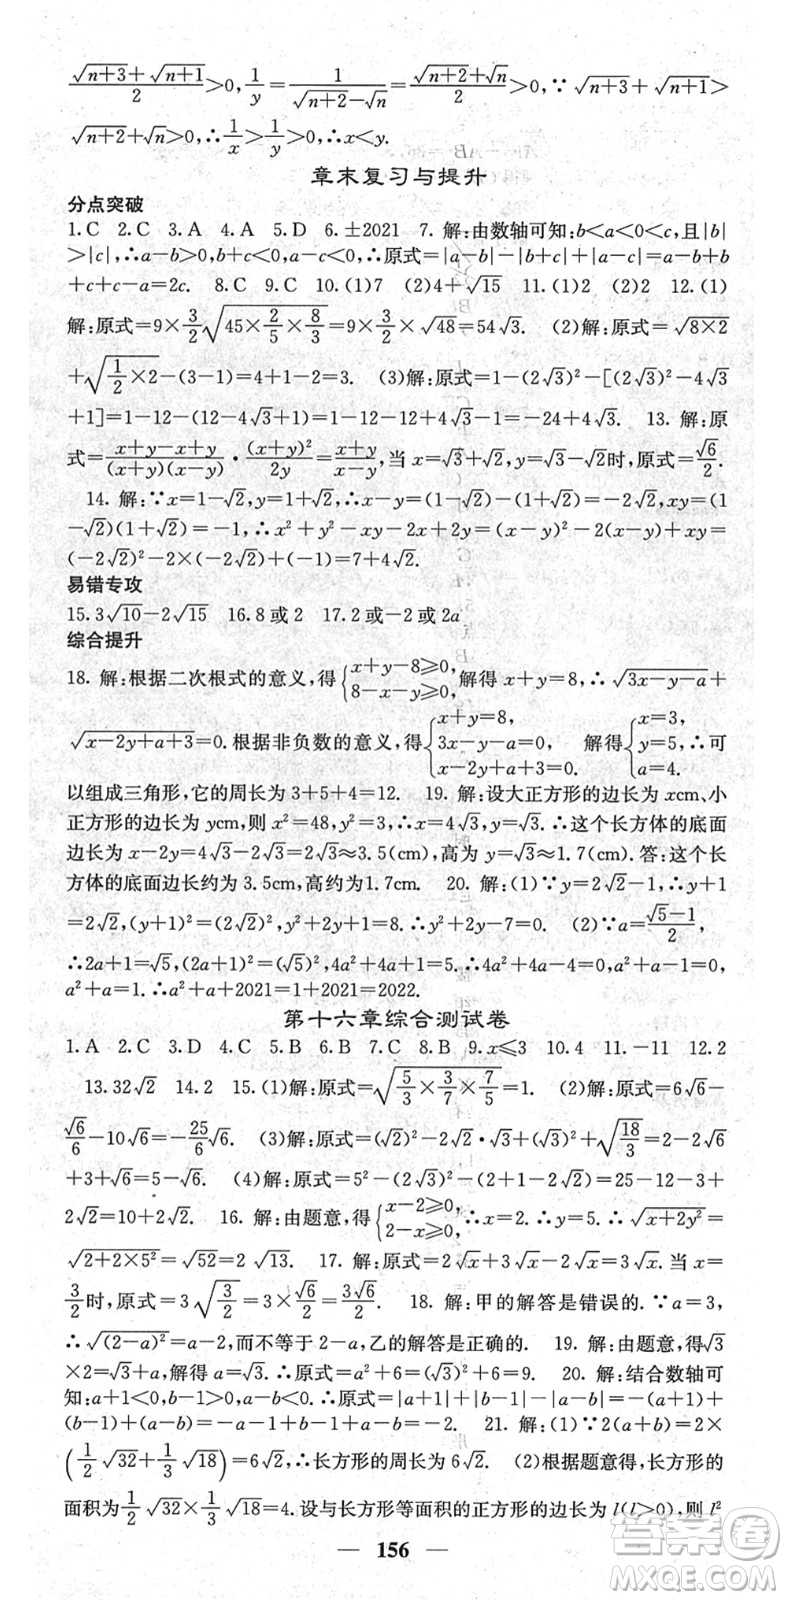 (√(n+3)+√(n+1))/2>0,1/y=1/(√(n+2)-√n)=(√(n+2)+√n)/2>0,∵√(n+3)+√(n+1)>
√(n+2)+√n>0,∴1/x>1/y>0,∴x<y.
章末复习与提升
分点突破
1.C 2.C 3.A 4.A 5.D 6.±2021 7. 解:由数轴可知:b<a<0<c,且|b|
>|c|,∴a-b>0,b+c<0,a-c<0,∴原式=|a-b|-|b+c|+|a-c|=a-b+b
+c+c-a=2c. 8.C 9.C 10.(1)7 (2)4+√15 11.(1)2 (2)2 12.(1)
解:原式=9×3/2√(45×2/5×8/3)=9×3/2×√48=54√3. (2)解:原式=√(8×2)
+√(1/2×2)-(3-1)=4+1-2=3. (3)解:原式=1-(2√3)²-[(2√3)²-4√3
+1]=1-12-(12-4√3+1)=1-12-12+4√3-1=-24+4√3. 13. 解:原
式=(x+y-x+y)/((x+y)(x-y))·(x+y)²/2y=(x+y)/(x-y),当 x=√3+√2,y=√3-√2时,原式=√6/2.
14. 解:∵x=1-√2,y=1+√2,∴x-y=(1-√2)-(1+√2)=-2√2,xy=(1
-√2)(1+√2)=-1,∴x²+y²-xy-2x+2y=(x-y)²-2(x-y)+xy=
(-2√2)²-2×(-2√2)+(-1)=7+4√2.
易错专攻
15.3√10-2√15 16.8 或 2 17.2 或-2 或 2a
综合提升
18. 解:根据二次根式的意义,得{x+y-8≥0, 8-x-y≥0,解得 x+y=8,∴√(3x-y-a)+
√(x-2y+a+3)=0.根据非负数的意义,得{x+y=8, 3x-y-a=0, x-2y+a+3=0, 解得{x=3, y=5, a=4.∴可
以组成三角形,它的周长为 3+5+4=12. 19. 解:设大正方形的边长为 xcm,小
正方形的边长为 ycm,则 x²=48,y²=3,∴x=4√3,y=√3.∴这个长方体的底面
边长为 x-2y=4√3-2√3=2√3≈3.5(cm),高为 y=√3≈1.7(cm).答:这个长
方体的底面边长约为 3.5cm,高约为1.7cm. 20. 解:(1)∵y=2√2-1,∴y+1
=2√2,(y+1)²=(2√2)²,y²+2y+1=8.∴y²+2y-7=0. (2)∵a=(√5-1)/2,
∴2a+1=√5,(2a+1)²=(√5)²,4a²+4a+1=5.∴4a²+4a-4=0,a²+a-1=0,
a²+a=1.∴a²+a+2021=1+2021=2022.
第十六章综合测试卷
1.A 2.C 3.D 4.C 5.B 6.B 7.C 8.B 9.x≤3 10.4 11.-11 12.2
13.32√2 14.2 15.(1)解:原式=√(5/3×3/7×7/5)=1. (2)解:原式=6√6-
√6/6-10√6=-25/6√6. (3)解:原式=(√2)²-2√2·√3+(√3)²+√(18/3)=2-2√6
+3+√6=5-√6. (4)解:原式=5²-(2√3)²-(2+1-2√2)=25-12-3+
2√2=10+2√2. 16. 解:由题意,得{x-2≥0, 2-x≥0,∴x=2.∴y=5.∴√(x+2y²)=
√(2+2×5²)=√52=2√13. 17. 解:原式=2√x+3√x-2√x=3√x. 当 x=
3/2时,原式=3√(3/2)=3×√6/2=3√6/2. 18. 解:甲的解答是错误的.∵a=3,
∴√(2-a)²=a-2,而不等于 2-a,乙的解答是正确的. 19. 解:由题意,得√3
×2=√3+a,解得 a=√3.∴原式=a²+6=(√3)²+6=9. 20. 解:结合数轴可
知:a+1<0,b-1>0,a-b<0.∴原式=|a+1|+|b-1|-|a-b|=-(a+1)+
(b-1)+(a-b)=-a-1+b-1+a-b=-2. 21. 解:(1)∵2(a+b)=2×
(1/2√32+1/3√18)=6√2,∴长方形的周长为 6√2. (2)根据题意得,长方形的
面积为1/2√32×1/3√18=4.设与长方形等面积的正方形的边长为 l(l>0),则 l²
156
答案圈
MXQE.COM